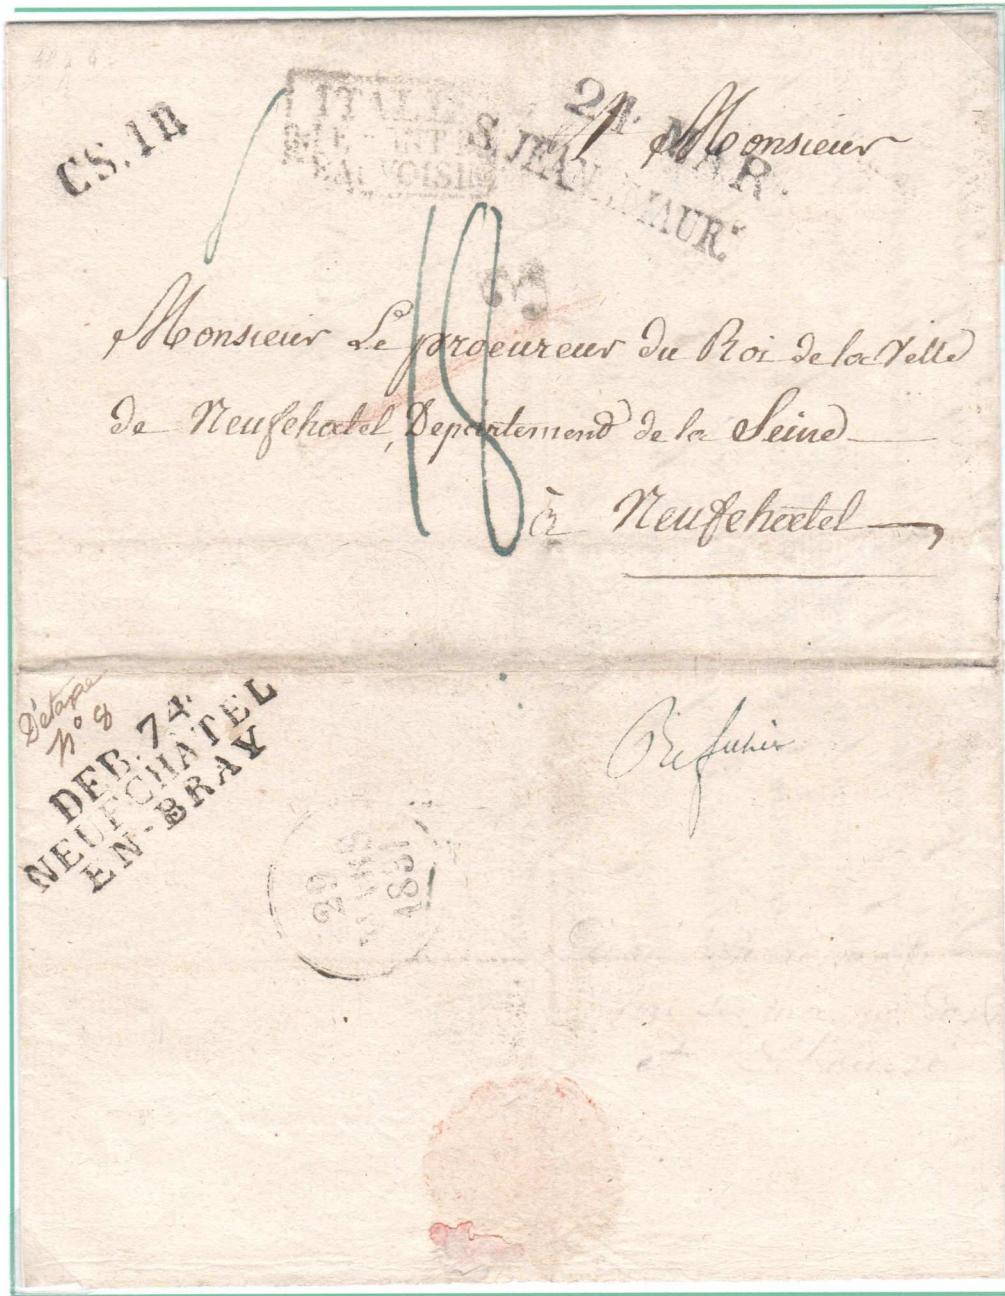 CS.1R
ITALIE
PAR LE PONT DE
BEAUVOISIN
24. MAR.
S. JEAN MAUR.
A Monsieur
18
3
Monsieur Le procureur du Roi de la Ville
de Neufchatel, Departement de la Seine
à Neufchatel
D'étape
N° 8
DEB. 74.
NEUFCHATEL
EN-BRAY
29
MARS
1831